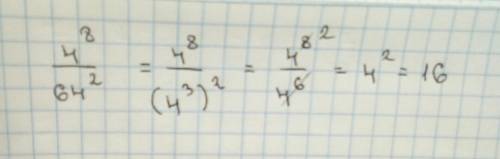 4⁸/64² = 4⁸/(4³)² = 4⁸ ²/4⁶ = 4² = 16